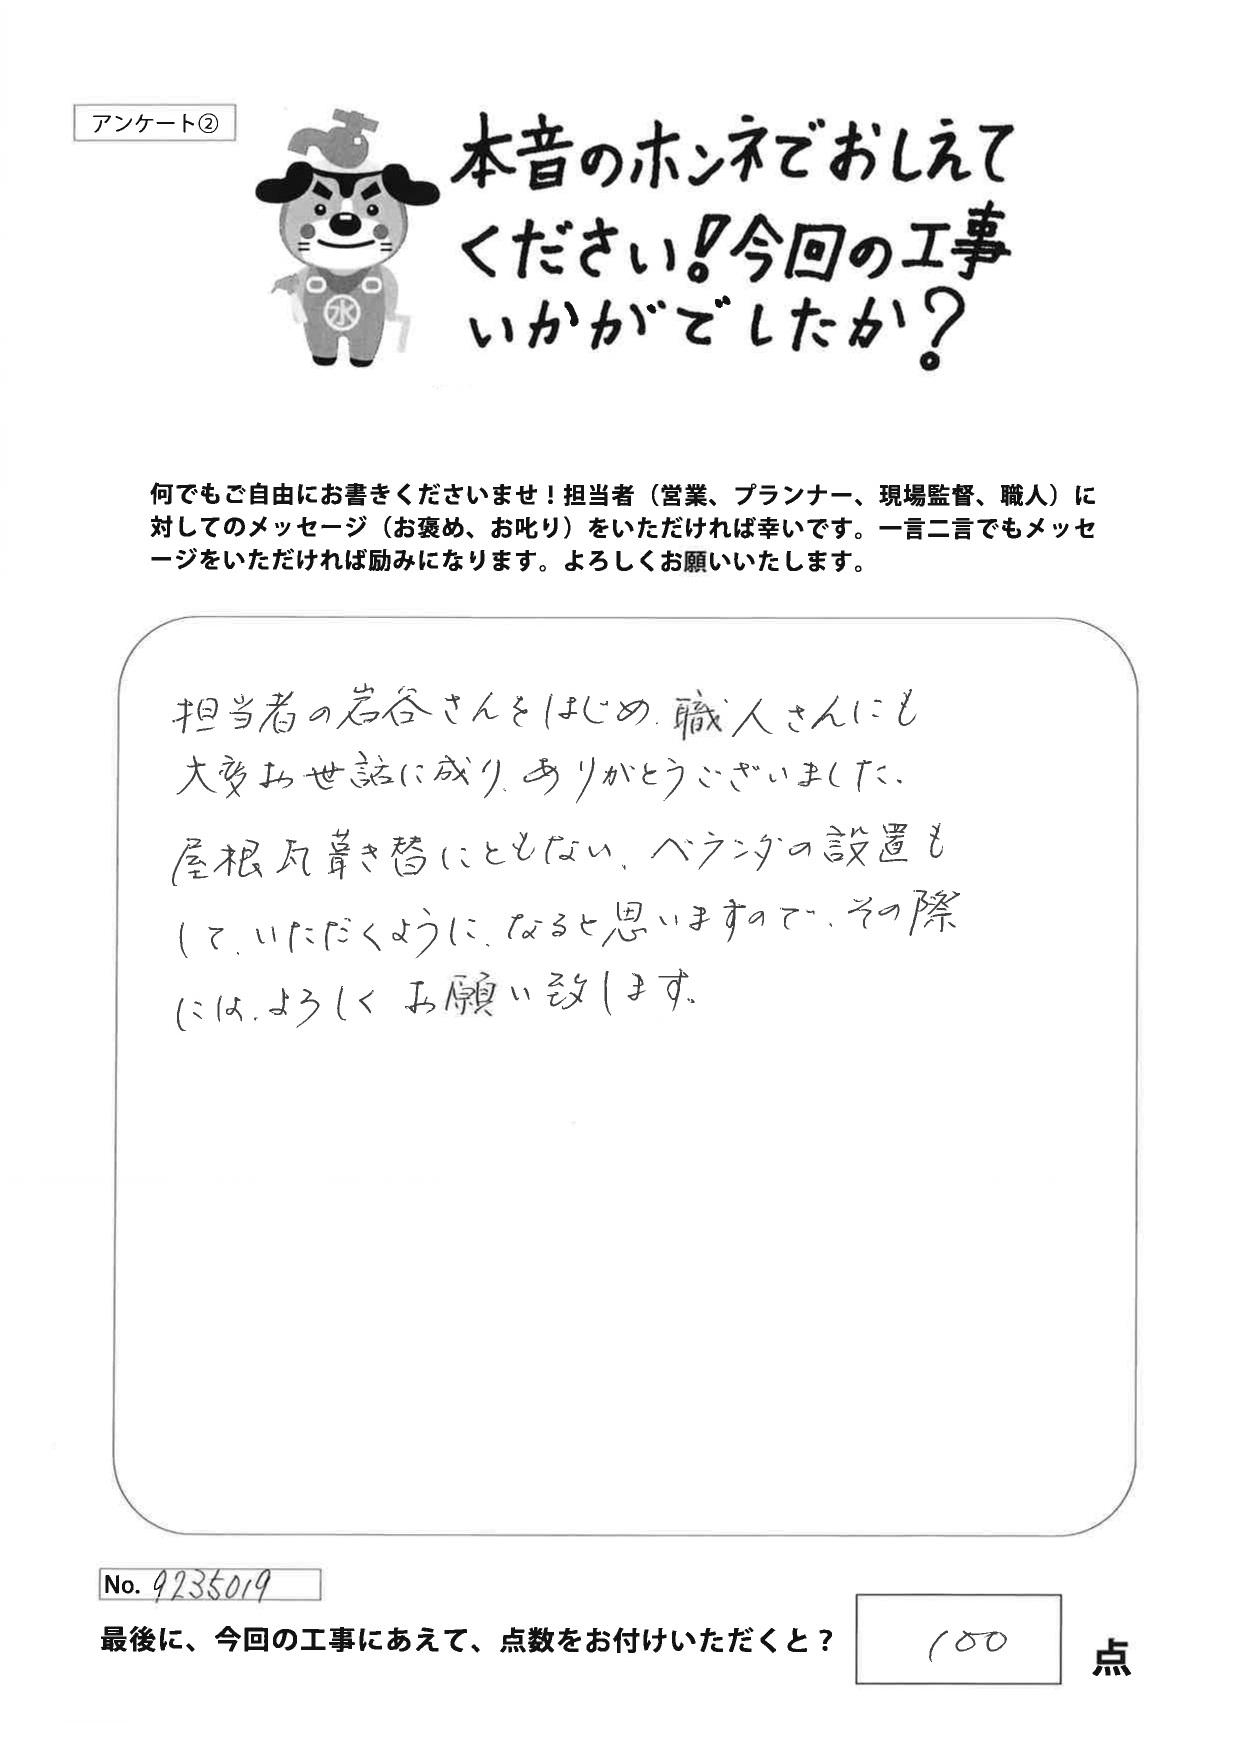 アンケート②
本音のホンネでおしえて
ください!今回の工事
いかがでしたか?
水
何でもご自由にお書きくださいませ！担当者（営業、プランナー、現場監督、職人）に
対してのメッセージ（お褒め、お叱り）をいただければ幸いです。一言二言でもメッセ
ージをいただければ励みになります。よろしくお願いいたします。
担当者の岩谷さんをはじめ、職人さんにも
大変お世話に成り、ありがとうございました。
屋根瓦葺き替にともない、ベランダの設置も
して、いただくように、なると思いますので、その際
には、よろしくお願い致します。
No. 9235019
最後に、今回の工事にあえて、点数をお付けいただくと？ 100 点